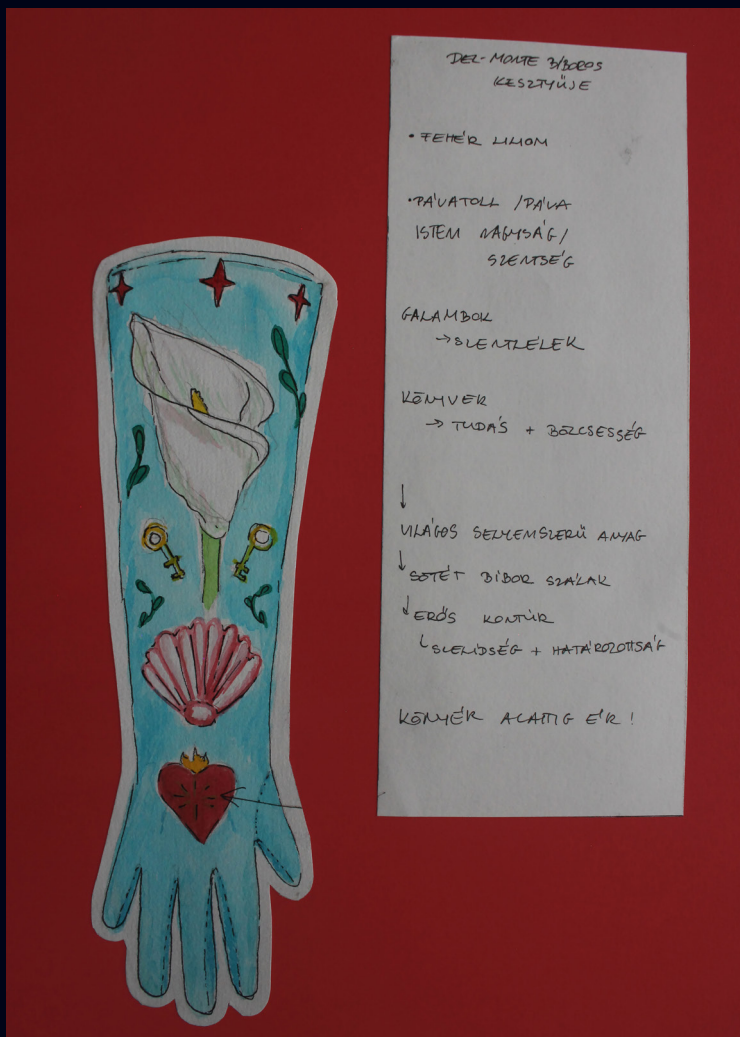 DEL-MONTE BÍBOROS
KESZTYŰJE
• FEHÉR LILIOM
• PÁVATOLL / PÁVA
ISTEM NAGYSÁG /
SZENTSÉG
GALAMBOK
→ SZENTLÉLEK
KÖNYVEK
→ TUDÁS + BÖLCSESSÉG
↓
VILÁGOS SELYEMSZERŰ ANYAG
↓ SÖTÉT BÍBOR SZÁLAK
↓ ERŐS KONTÚR
↳ SZELÍDSÉG + HATÁROZOTTSÁG
KÖNYÉK ALATTIG ÉR!